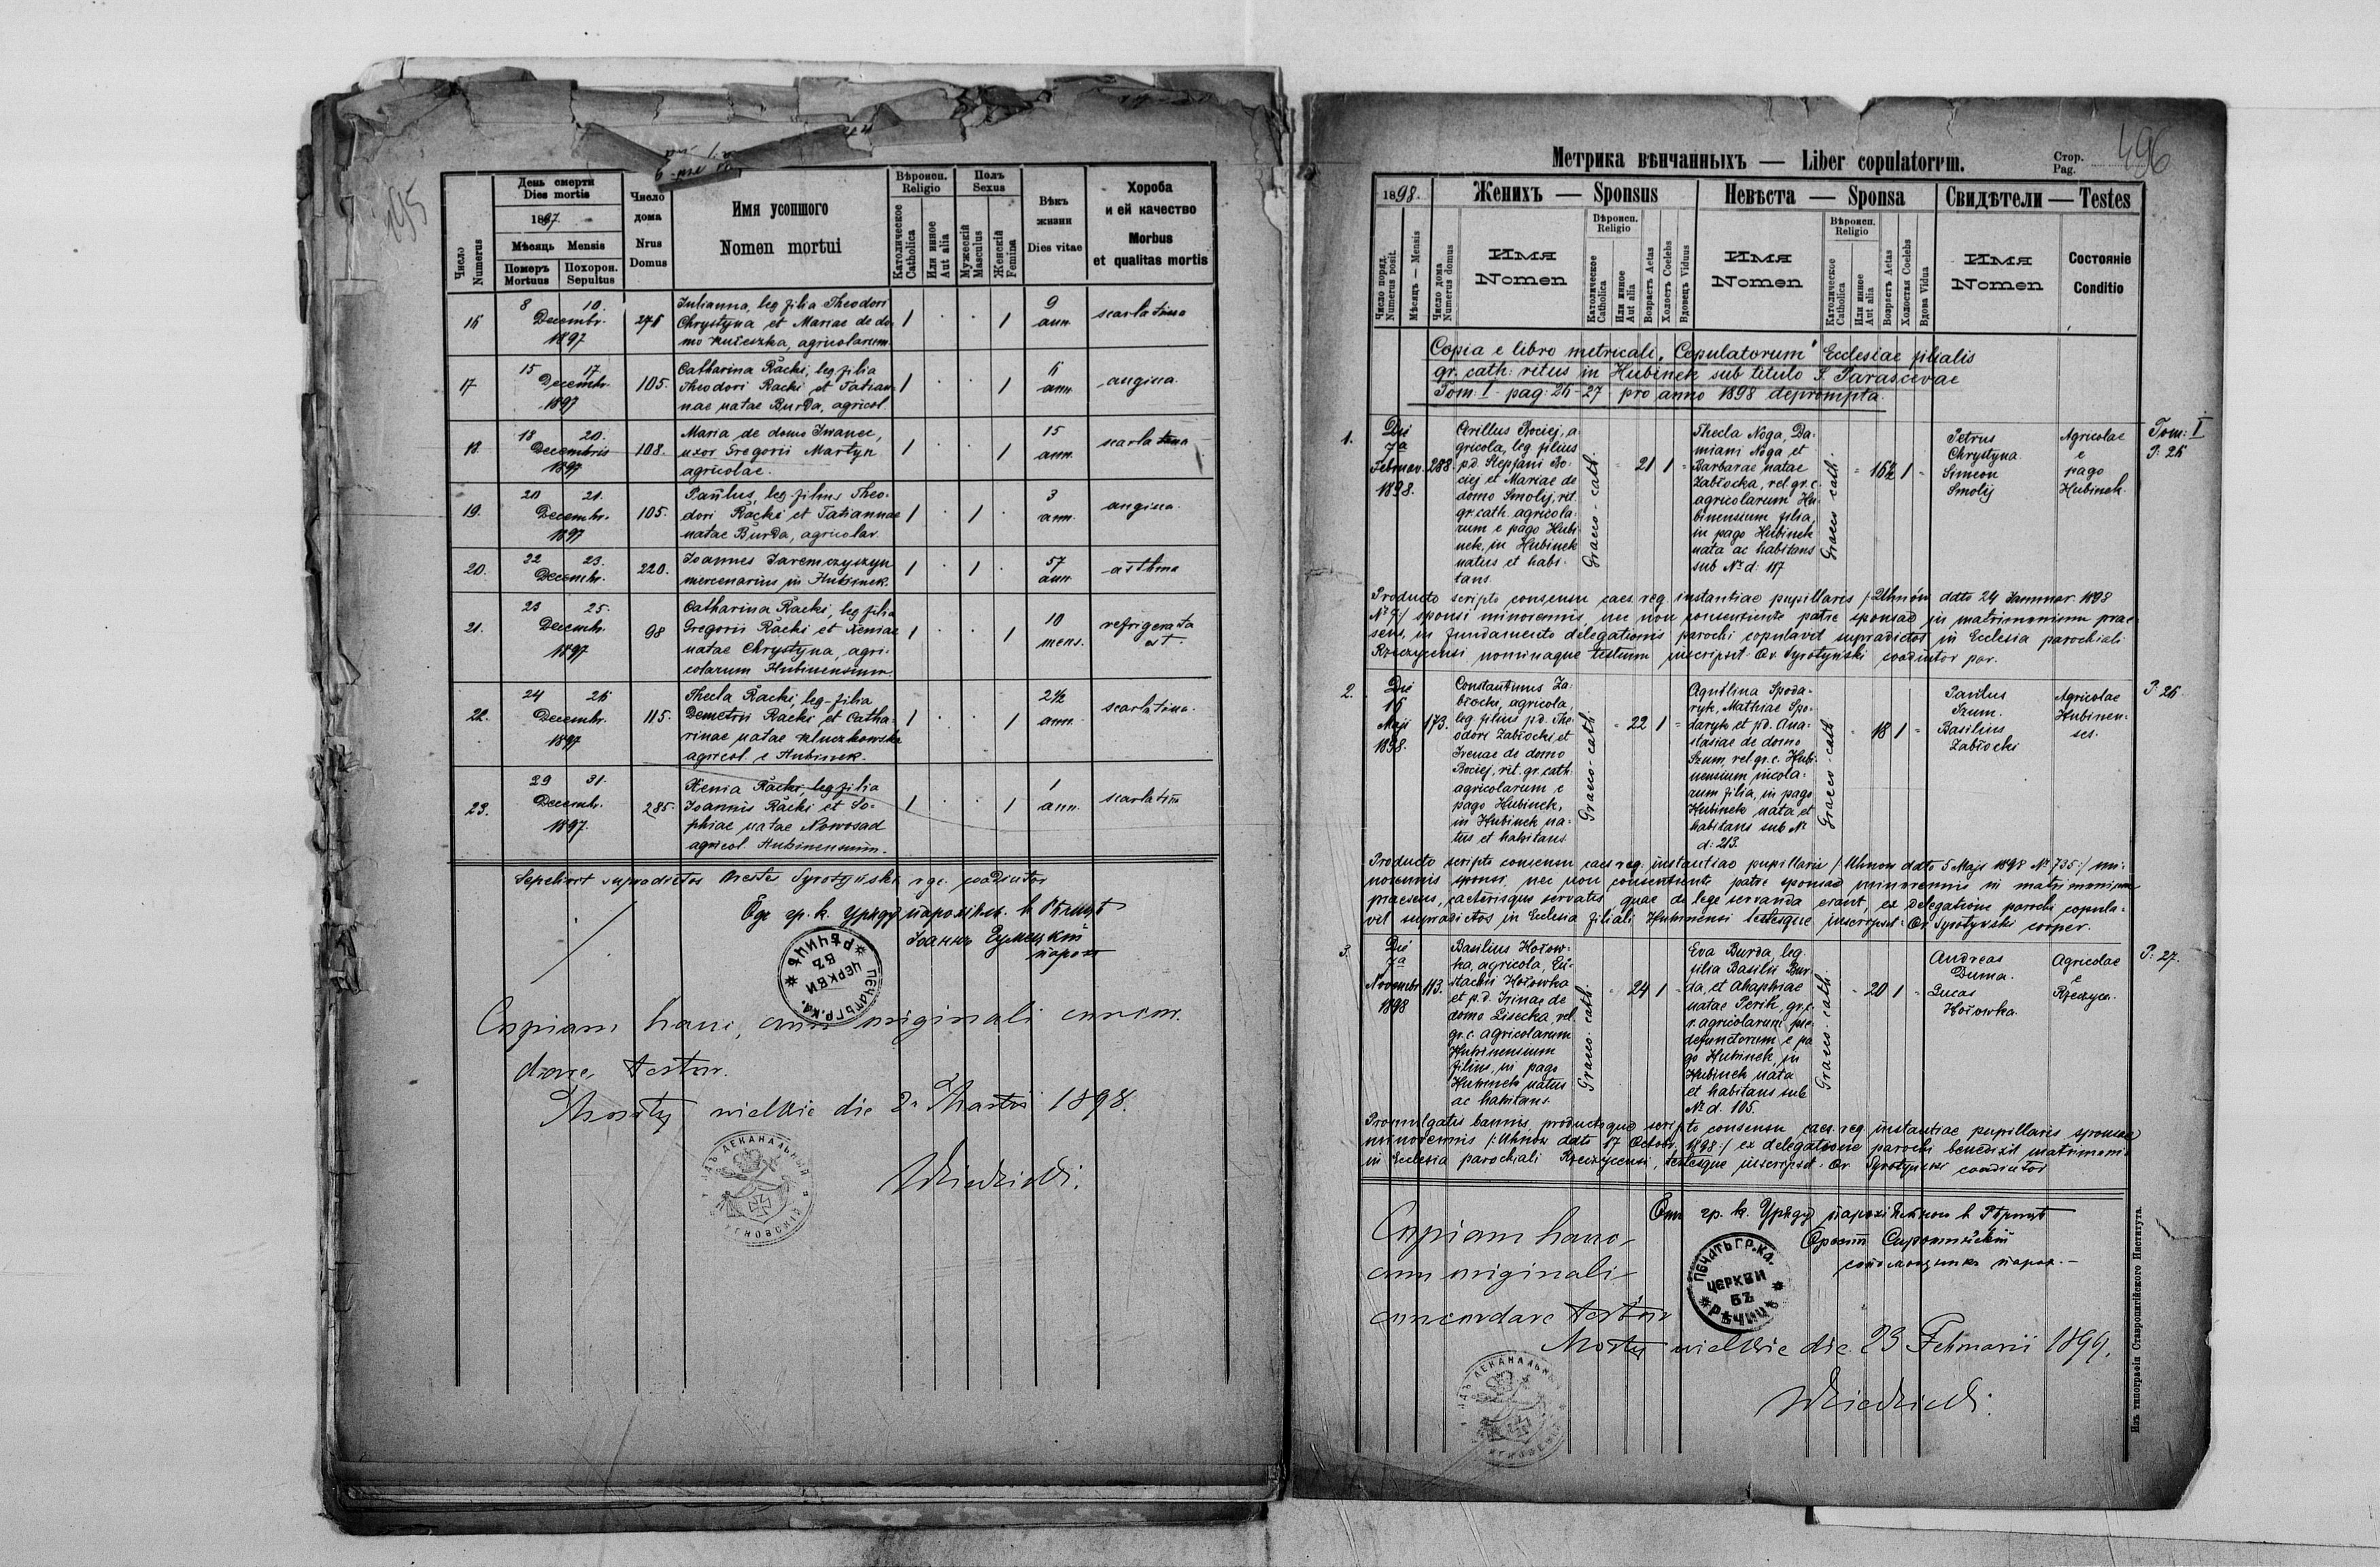 195
День смерти
Dies mortis
1897
Мѣсяць Mensis
Померъ Mortuus
Похорон. Sepultus
Число Numerus
Число дома
Nrus Domus
Имя усопшого
Nomen mortui
Вѣроисп. Religio
Католическое Catholica
Или инное Aut alia
Полъ Sexus
Мужескій Masculus
Женскій Femina
Вѣкъ жизни
Dies vitae
Хороба и ей качество
Morbus et qualitas mortis
16 8 10. Decembr. 1897
Iulianna, leg filia Theodori
Chrystyna et Mariae de do-
mo, agricolarum
1 1 9 ann. scarlatina
17 15 17 Decembr. 1897 105.
Catharina Racki, leg filia
Theodori Racki et Tatian-
nae natae Burda, agricol.
1 1 ann. angina.
18 18 20. Decembris 1897 108.
Maria de domo Iwanec,
uxor Gregorii Martyn
agricolae.
1 1 15 ann. scarlatina
19. 20 21. Decembr. 1897 105.
Paulus, leg filius Theo-
dori Racki et Tatiannae
natae Burda, agricolar.
1 1 3 ann. angina.
20. 22 23. Decembr. 220.
Ioannes Jaremczyszyn
mercenarius in Hubinek.
1 1 57 ann. asthma
21. 23 25. Decembr. 1897 98
Catharina Racki, leg filia
Gregorii Racki et Xeniae
natae Chrystyna, agri-
colarum Hubinensium.
1 1 10 mens. refrigerata est.
22. 24 26 Decembr. 1897 115.
Thecla Racki, leg. filia
Demetrii Racki et Catha-
rinae natae Kluczkowska
agricol. e Hubinek.
1 1 2½ ann. scarlatina.
23. 29 31. Decembr. 1897. 285.
Xenia Racki, leg filia
Ioannis Racki et So-
phiae natae Nowosad
agricol. Hubinensium.
1 1 1 ann. scarlatin
Sepelivit supradictos Orestes Syrotyński, r. gc. coadiutor
гр. к. Уряду парохіяльн. в Рѣчици
Іоаннъ
парох
ПЕЧАТЬ ГР. КА. ЦЕРКВИ ВЪ РѢЧИЦѢ
Copiam hanc, cum originali concor-
dare, testor.
Mosty wielkie die 2 Martii 1898.
ДЕКАНАЛЬНЫЙ
496
Метрика вѣнчанныхъ — Liber copulatorum.
Стор. Pag.
1898.
Женихъ — Sponsus
Невѣста — Sponsa
Свидѣтели — Testes
Число поряд. Numerus posit.
Мѣсяць — Mensis
Число дома Numerus domus
Имя Nomen
Вѣроисп. Religio
Католическое Catholica
Или инное Aut alia
Возрастъ Aetas
Холостъ Coelebs
Вдовець Viduus
Имя Nomen
Вѣроисп. Religio
Католическое Catholica
Или инное Aut alia
Возрастъ Aetas
Холостая Coelebs
Вдова Vidua
Имя Nomen
Состояніе Conditio
Copia e libro metricali „Copulatorum" Ecclesiae filialis
gr. cath: ritus in Hubinek sub titulo S. Parascevae
Tom: I. pag: 26-27 pro anno 1898 deprompta.
1. Die 7a Februar. 1898. 288.
Cirillus Bociej, a-
gricola, leg filius
p.d. Stephani Bo-
ciej et Mariae de
domo Smolij, rit.
gr. cath. agricola-
rum e pago Hubi-
nek, in Hubinek
natus et habi-
tans.
Graeco-cath. 21 1
Thecla Noga, Da-
miani Noga et
Barbarae natae
Zabłocka, rel. gr. c.
agricolarum Hu-
binensium filia,
in pago Hubinek
nata ac habitans
sub Nr. d: 117
Graeco-cath. 16½ 1
Petrus
Chrystyna
Simeon
Smolij
Agricolae
e
pago
Hubinek
Tom: I
P: 26
Producto scripto consensu caes. reg. instantiae pupillaris /: Uhnów ddto 24 Januar. 1898
Nr 7:/ sponsi minorennis, nec non consentiente patre sponsae in matrimonium prae-
sens, in fundamento delegationis parochi copulavit supradictos in Ecclesia parochiali
Rzeczycensi nominaque testium inscripsit Or. Syrotyński coadiutor par.
2. Die 16 Maji 1898. 173.
Constantinus Za-
błocki, agricola,
leg filius p.d. The-
odori Zabłocki et
Irenae de domo
Bociej, rit. gr. cath.
agricolarum e
pago Hubinek,
in Hubinek na-
tus et habitans
Graeco-cath. 22 1
Aquilina Spoda-
ryk, Mathiae Spo-
daryk et p.d. Ana-
stasiae de domo
Szum, rel. gr. c. Hubi-
nensium incola-
rum filia, in pago
Hubinek nata et
habitans sub Nr
d: 213.
Graeco-cath 18 1
Paulus
Szum.
Basilius
Zabłocki
Agricolae
Hubinen-
ses.
P: 26.
Producto scripto consensu caes. reg. instantiae pupillaris /: Uhnow ddto 5 Maji 1898 Nr 735:/ mi-
norennis sponsi, nec non consentiente patre sponsae minorennis in matrimonium
praesens, caeterisque servatis, quae de lege servanda erant, ex delegatione parochi copula-
vit supradictos in Ecclesia filiali Hubinensi testesque inscripsit: Or. Syrotyński cooper.
3. Die 7a Novembr 1898 113.
Basilius Hołow-
ka, agricola, Eu-
stachii Hołowka
et p.d. Irinae de
domo Lisecka, rel.
gr. c. agricolarum
Hubinensium
filius, in pago
Hubinek natus
ac habitans.
Graeco-cath. 24 1
Eva Burda, leg.
filia Basilii Bur-
da, et Ahaphiae
natae Perih, gr. c.
r. agricolarum prae-
defunctorum e pa-
go Hubinek, in
Hubinek nata
et habitans sub
Nr. d. 105.
Graeco-cath. 20 1
Andreas
Duma.
Lucas
Hołowka.
Agricolae
e
Rzeczyca.
P: 27.
Promulgatis bannis, productoque scripto consensu caes. reg. instantiae pupillaris sponsae
minorennis /: Uhnow ddto 17 Octobr. 1898:/ ex delegatione parochi benedixit matrimonio
in Ecclesia parochiali Rzeczycensi, testesque inscripsit. Or. Syrotyński coadiutor
гр. к. Уряду парохіяльного в Рѣчицѣ
Орест Сиротиньскій
сотрудникъ парох.
ПЕЧАТЬ ГР. КА. ЦЕРКВИ ВЪ РѢЧИЦѢ
Copiam hanc
cum originali
concordare testor
Mosty wielkie die 23 Februarii 1899.
ДЕКАНАЛЬНЫЙ
Изъ типографіи Ставропигійского Института.